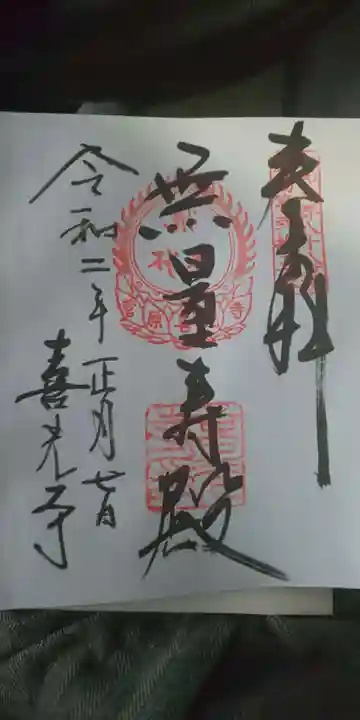 奉拝
無量寿殿
令和二年正月七日
喜光寺